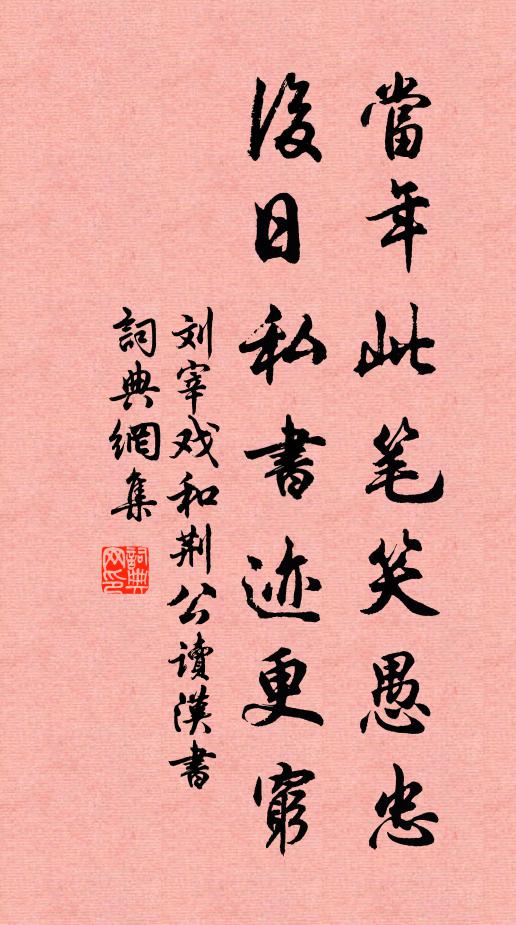 當年此笔笑愚忠
後日私書迹更窮
刘宰戏和荆公讀漢書
詞典網集
詞典网印